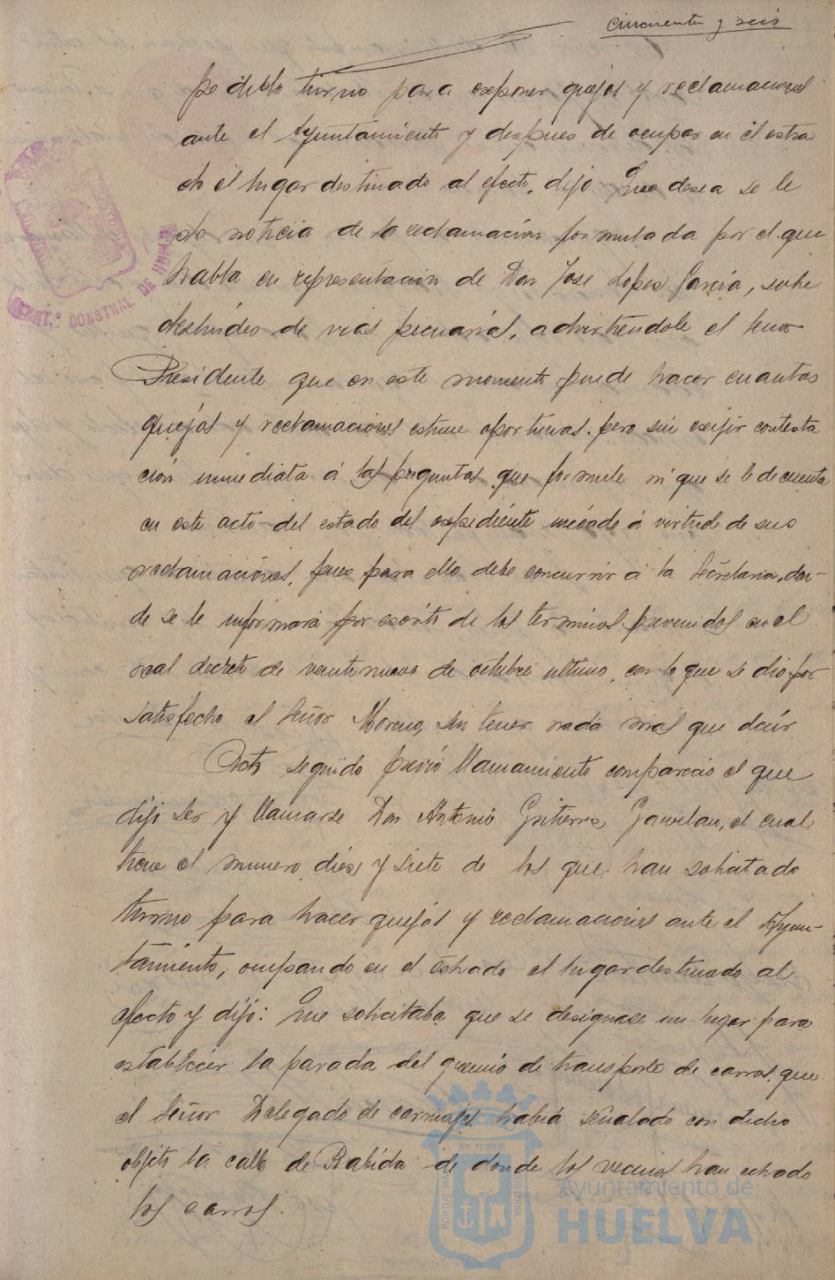 cincuenta y seis
pedido turno para exponer quejas y reclamaciones
ante el Ayuntamiento y despues de ocupar en el estra
do el lugar destinado al efecto, dijo Que desea se le
de noticia de la reclamación formulada por el que
habla en representación de Don José Lopez Garcia, sobre
deslindes de vias pecuarias, advirtiéndole el Señor
Presidente que en este momento puede hacer cuantas
quejas y reclamaciones estime oportunas, pero sin exijir contesta
ción inmediata á las preguntas que formule ni que se le de cuenta
en este acto del estado del expediente incoado á virtud de sus
reclamaciones, pues para ello debe concurrir á la Secretaria, don-
de se le informará por escrito de los terminos prevenidos en el
real decreto de veintinueve de octubre ultimo, con lo que se dio por
satisfecho el Señor Moreno, sin tener nada mas que decir
Acto seguido previo llamamiento compareció el que
dijo ser y llamarse Don Antonio Gutierrez Gavilan, el cual
tiene el numero diez y siete de los que han solicitado
turno para hacer quejas y reclamaciones ante el Ayun-
tamiento, ocupando en el estrado el lugar destinado al
efecto y dijo: Que solicitaba que se designase un lugar para
establecer la parada del gremio de transporte de carros, que
el Señor Delegado de carruajes habia señalado con dicho
objeto la calle de Rabida de donde los vecinos han echado
los carros.
Ayuntamiento de
HUELVA